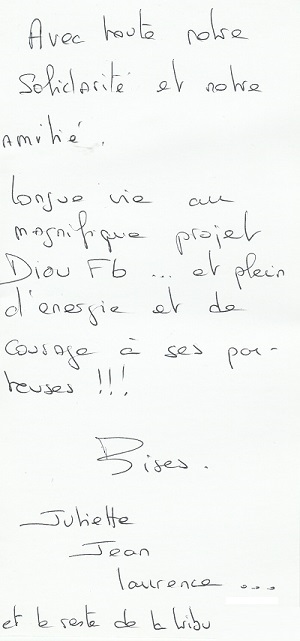 Avec toute notre
Solidarité et notre
amitié.
longue vie au
magnifique projet
Diou Fb ... et plein
d'energie et de
courage à ses por-
teuses !!!
Bises.
Juliette
Jean
laurence ...
et le reste de la tribu